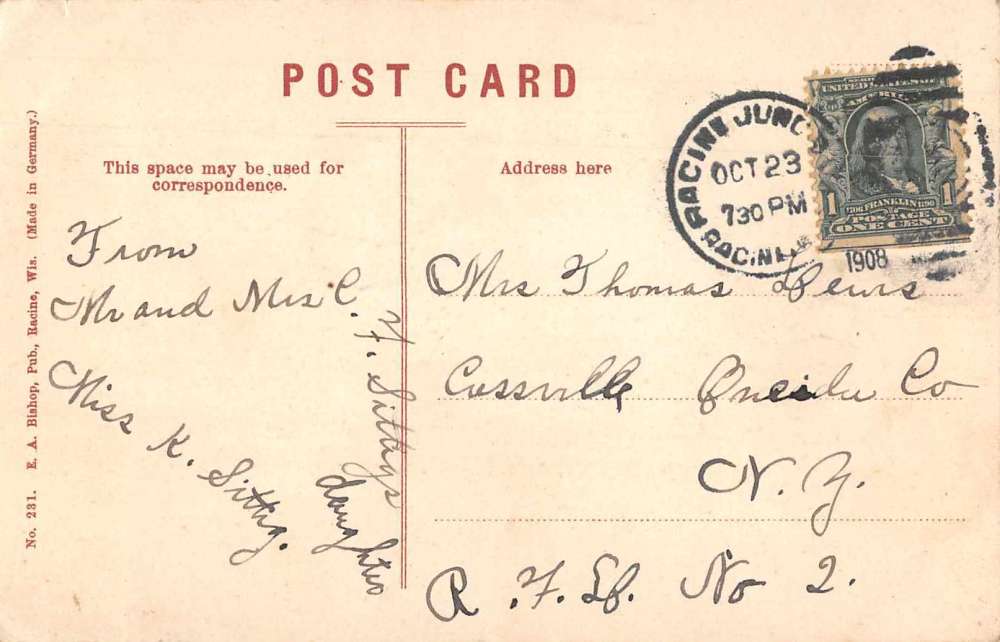 POST CARD
This space may be used for
correspondence.
Address here
No. 231. E. A. Bishop, Pub., Racine, Wis. (Made in Germany.)
From
Mr and Mrs C. F. Sittigs
daughter
Miss K. Sittig.
RACINE JUNC
OCT 23
730 PM
RACINE
1908
UNITED STATES OF
AMERICA
1 1
1706 FRANKLIN 1790
POSTAGE
ONE CENT
Mrs Thomas Lewis
Cassville Oneida Co
N. Y.
R. F. D. No 2.